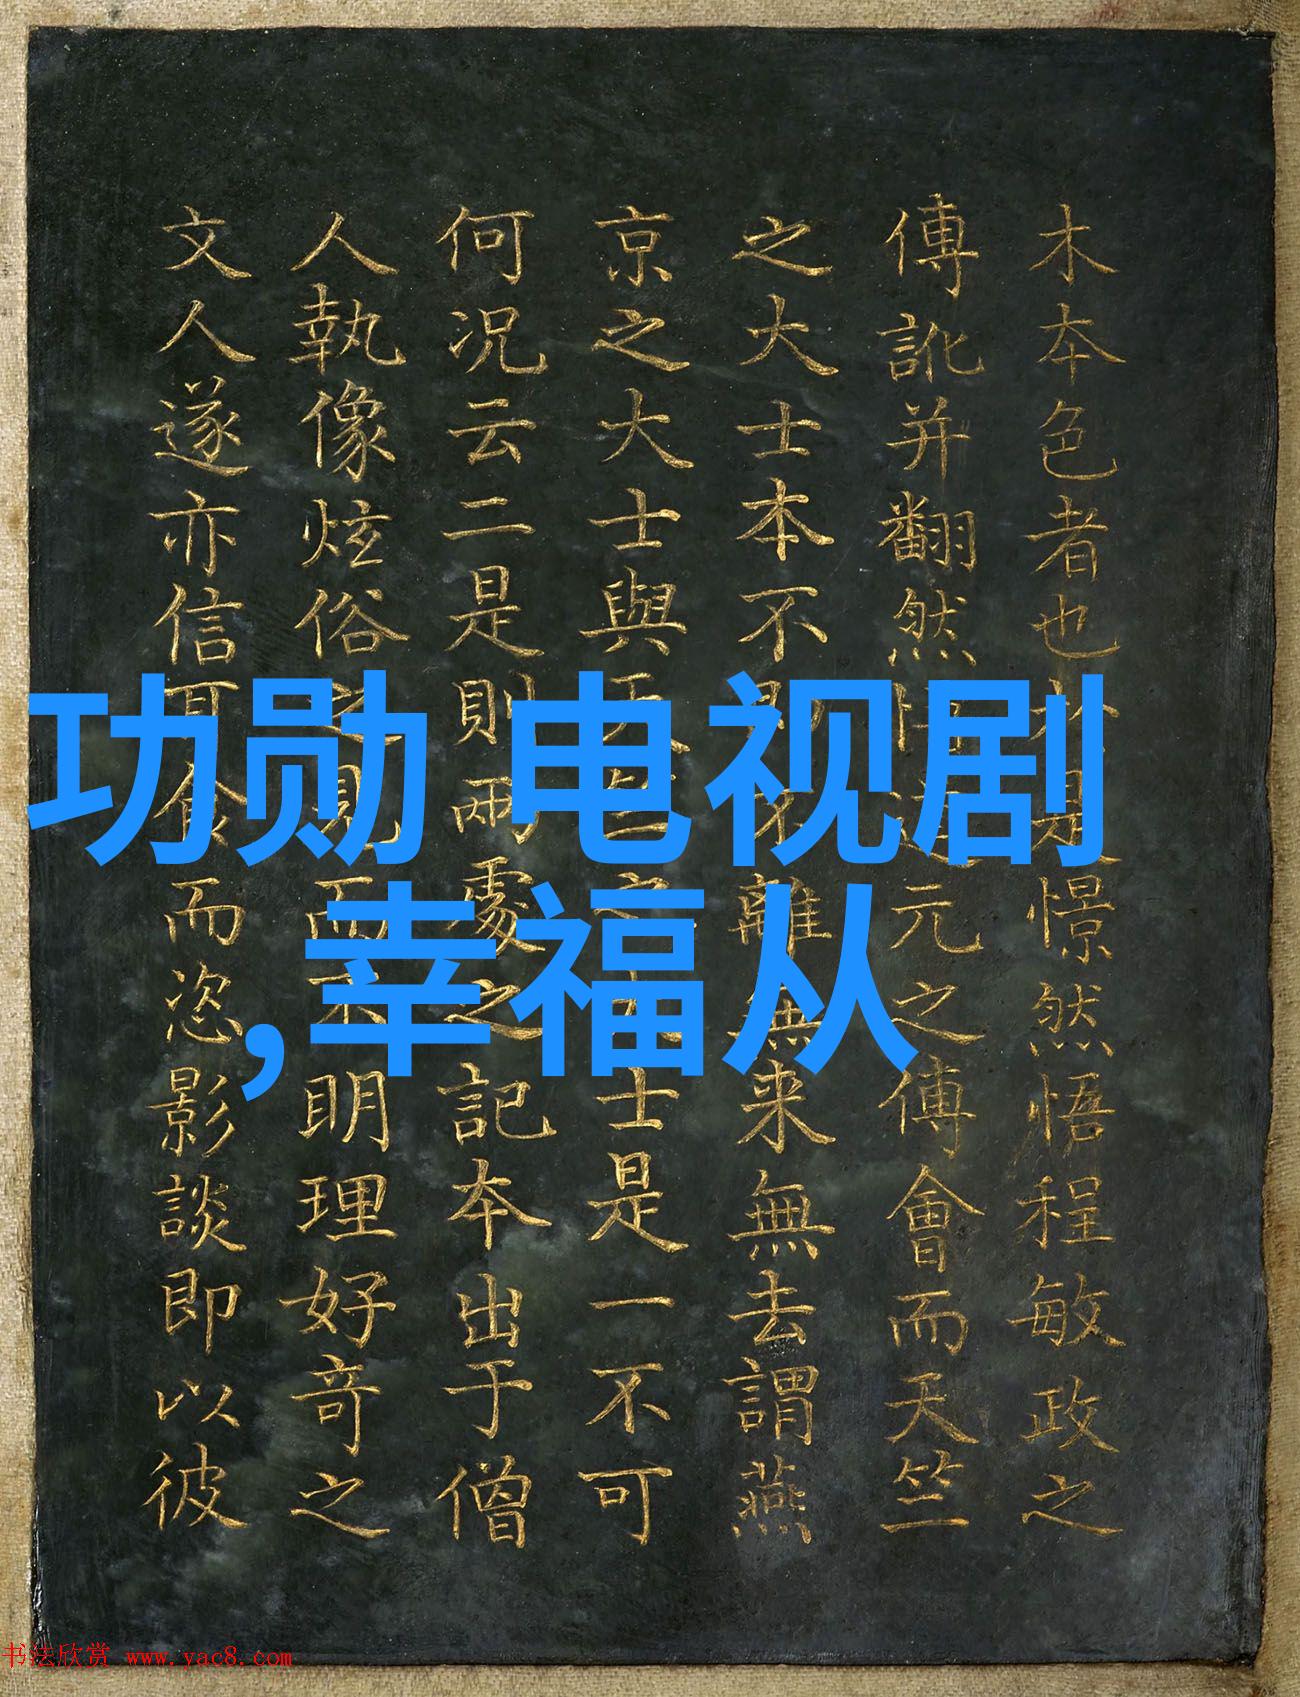 木本色者也是憬然悟程敏政之
傳訛并翻然元之傅會而天竺
之大士本不不離無来無去謂燕
京之大士與天竺之大士是一不可
何况云二是則兩處之記本出于僧
人執像炫俗之見而不明理好奇之
文人遂亦信耳食而恣影談即以彼
功勋 电视剧
,幸福从
书法欣赏 www.yac8.com